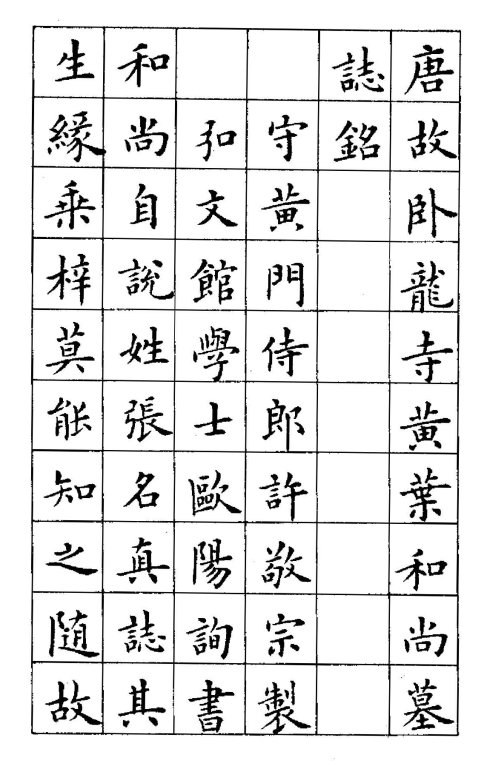 唐故卧龍寺黄葉和尚墓
誌銘
守黄門侍郎許敬宗製
弘文館學士歐陽詢書
和尚自說姓張名真誌其
生緣桒梓莫能知之随故